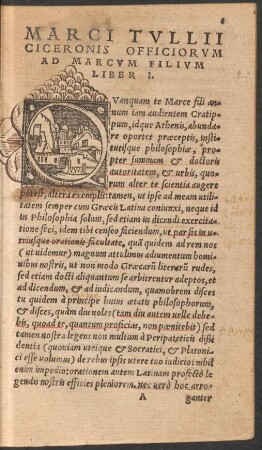 MARCI TVLLII
CICERONIS OFFICIORVM
AD MARCVM FILIVM
LIBER I.
Vanquam te Marce fili an-
num iam audientem Cratip-
pum, idque Athenis, abunda-
re oportet præceptis, insti-
tutisque philosophiæ, prop-
ter summam & doctoris
autoritatem, & urbis, quo-
rum alter te scientia augere
potest, altera exemplis: tamen, ut ipse ad meam utili-
tatem semper cum Græcis Latina coniunxi, neque id
in Philosophia solum, sed etiam in dicendi exercita-
tione feci, idem tibi censeo faciendum, ut par sis in u-
triusque orationis facultate, quã quidem ad rem nos
(ut uidemur) magnum attulimus adiumentum homi-
nibus nostris, ut non modo Græcarũ literarũ rudes,
sed etiam docti aliquantum se arbitrentur adeptos, et
ad dicendum, & ad iudicandum, quamobrem disces
tu quidem à principe huius ætatis philosophorum,
& disces, quàm diu uoles (tam diu autem uelle debe-
bis, quoad te, quantum proficias, non pœnitebit) sed
tamen nostra legens non multum à Peripateticis dissi
dentia (quoniam utrique & Socratici, & Platoni-
ci esse uolumus) de rebus ipsis utere tuo iudicio: nihil
enim impedio: orationem autem Latinam profectò le
gendis nostris efficies pleniorem. nec uerò hoc arro-
A ganter